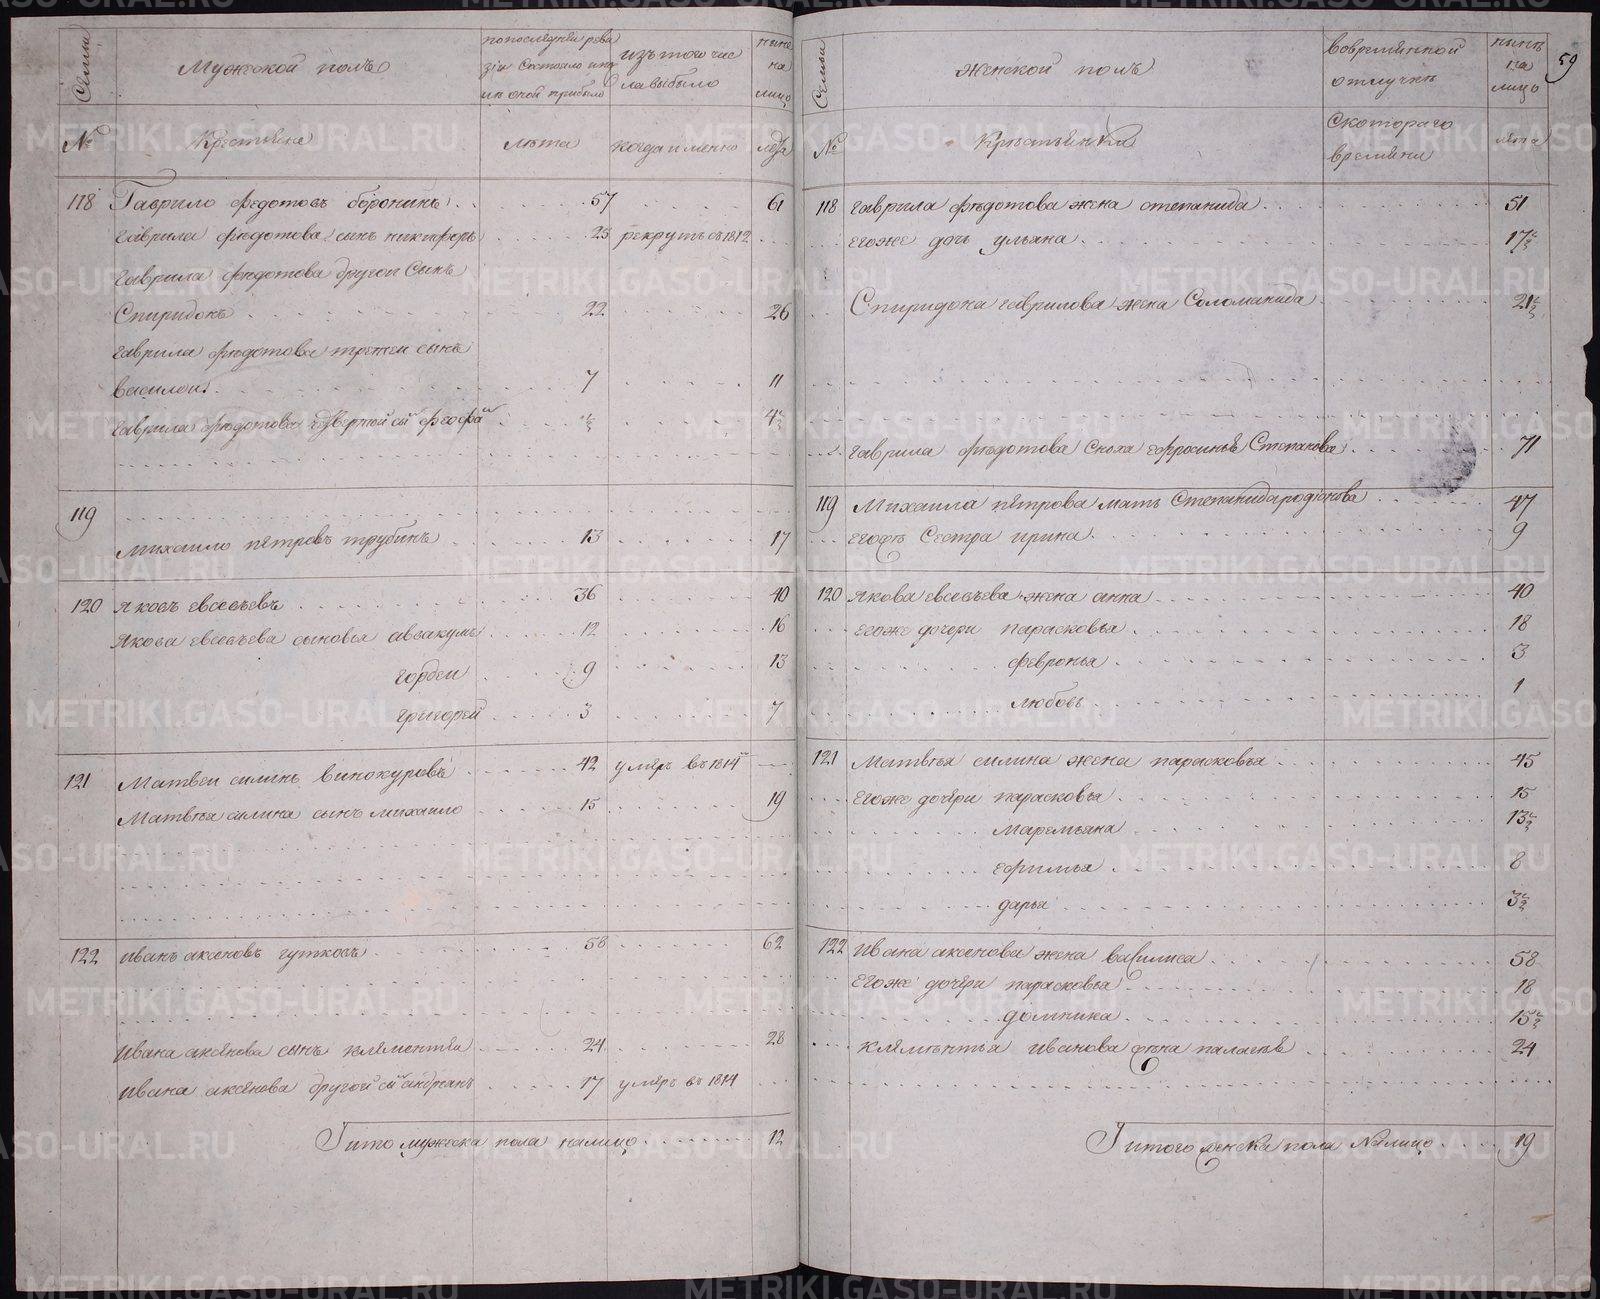 Семьи
Мужеской полъ
по последней реви
зiи состояло и по
из того чис
ла выбыло
ныне
на
лицо
№
Крестьяне
лета
когда именно
лета
118 Гаврило федотовъ 57 61
Гаврила федотова сынъ никифоръ 25 рекрутъ въ 1812
Гаврила федотова другой сынъ
Спиридонъ 22 26
Гаврила федотова третей сынъ
василеи 7 11
Гаврила федотова 4½
119
михаило петровъ трубинъ 13 17
120 яковъ евсевьевъ 36 40
якова евсевьева сыновья авакумъ 12 16
гордеи 9 13
григореи 3 7
121 Матвеи силинъ винокуровъ 42 умеръ въ 1814
Матвея силина сынъ михаило 15 19
122 иванъ аксеновъ гутковъ 58 62
ивана аксенова сынъ клементеи 24 28
ивана аксенова другой сынъ андреанъ 17 умеръ въ 1814
Итого мужеска пола налицо 12
59
Семьи
Женской полъ
во временной
отлучке
ныне
на
лицо
№
Крестьянки
с котораго
времяни
лета
118 гаврила федотова жена степанида 51
егоже дочь ульяна 17½
Спиридона гаврилова жена Соломанида 21½
гаврила федотова сноха ефросинья Степанова 71
119 Михаила петрова мать Степанида родiонова 47
сестра ирина 9
120 якова евсевьева жена анна 40
егоже дочери парасковья 18
февронья 3
любовь 1
121 Матвея силина жена парасковья 45
егоже дочери парасковья 15
маремьяна 13½
ефимья 8
дарья 3½
122 ивана аксенова жена василиса 58
егоже дочери парасковья 18
домника 15½
клементья иванова жена палагья 24
Итого женска пола налицо 19
METRIKI.GASO-URAL.RU